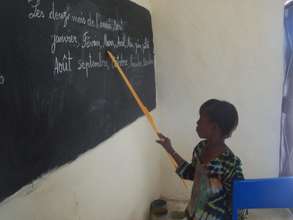 Les douze mois de l'année sont
janvier, Février, Mars, Avril, Mai, juin, juillet
Août septembre, octobre, novembre, décembre